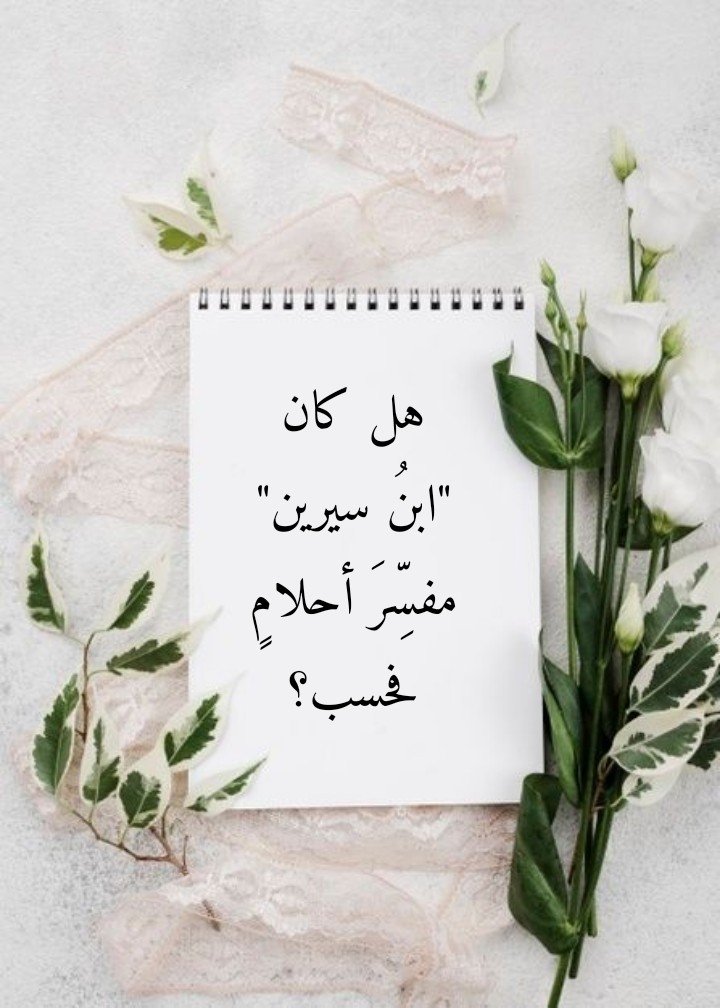 هل كان
"ابنُ سيرين"
مفسِّرَ أحلامٍ
فحسب؟